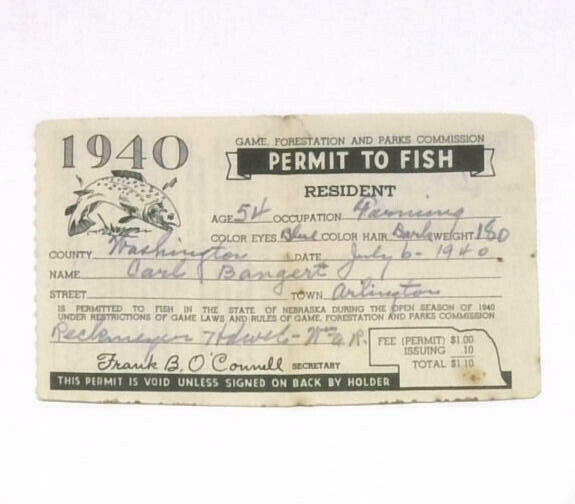 1940
GAME, FORESTATION AND PARKS COMMISSION
PERMIT TO FISH
RESIDENT
AGE 54 OCCUPATION Farming
COLOR EYES Blue COLOR HAIR Dark WEIGHT 180
COUNTY Washington DATE July 6 - 1940
NAME Carl Bangert
STREET TOWN Arlington
IS PERMITTED TO FISH IN THE STATE OF NEBRASKA DURING THE OPEN SEASON OF 1940
UNDER RESTRICTIONS OF GAME LAWS AND RULES OF GAME, FORESTATION AND PARKS COMMISSION
Reckmeyer Hdwe
Frank B. O'Connell SECRETARY
FEE (PERMIT) $1.00
ISSUING 10
TOTAL $1.10
THIS PERMIT IS VOID UNLESS SIGNED ON BACK BY HOLDER